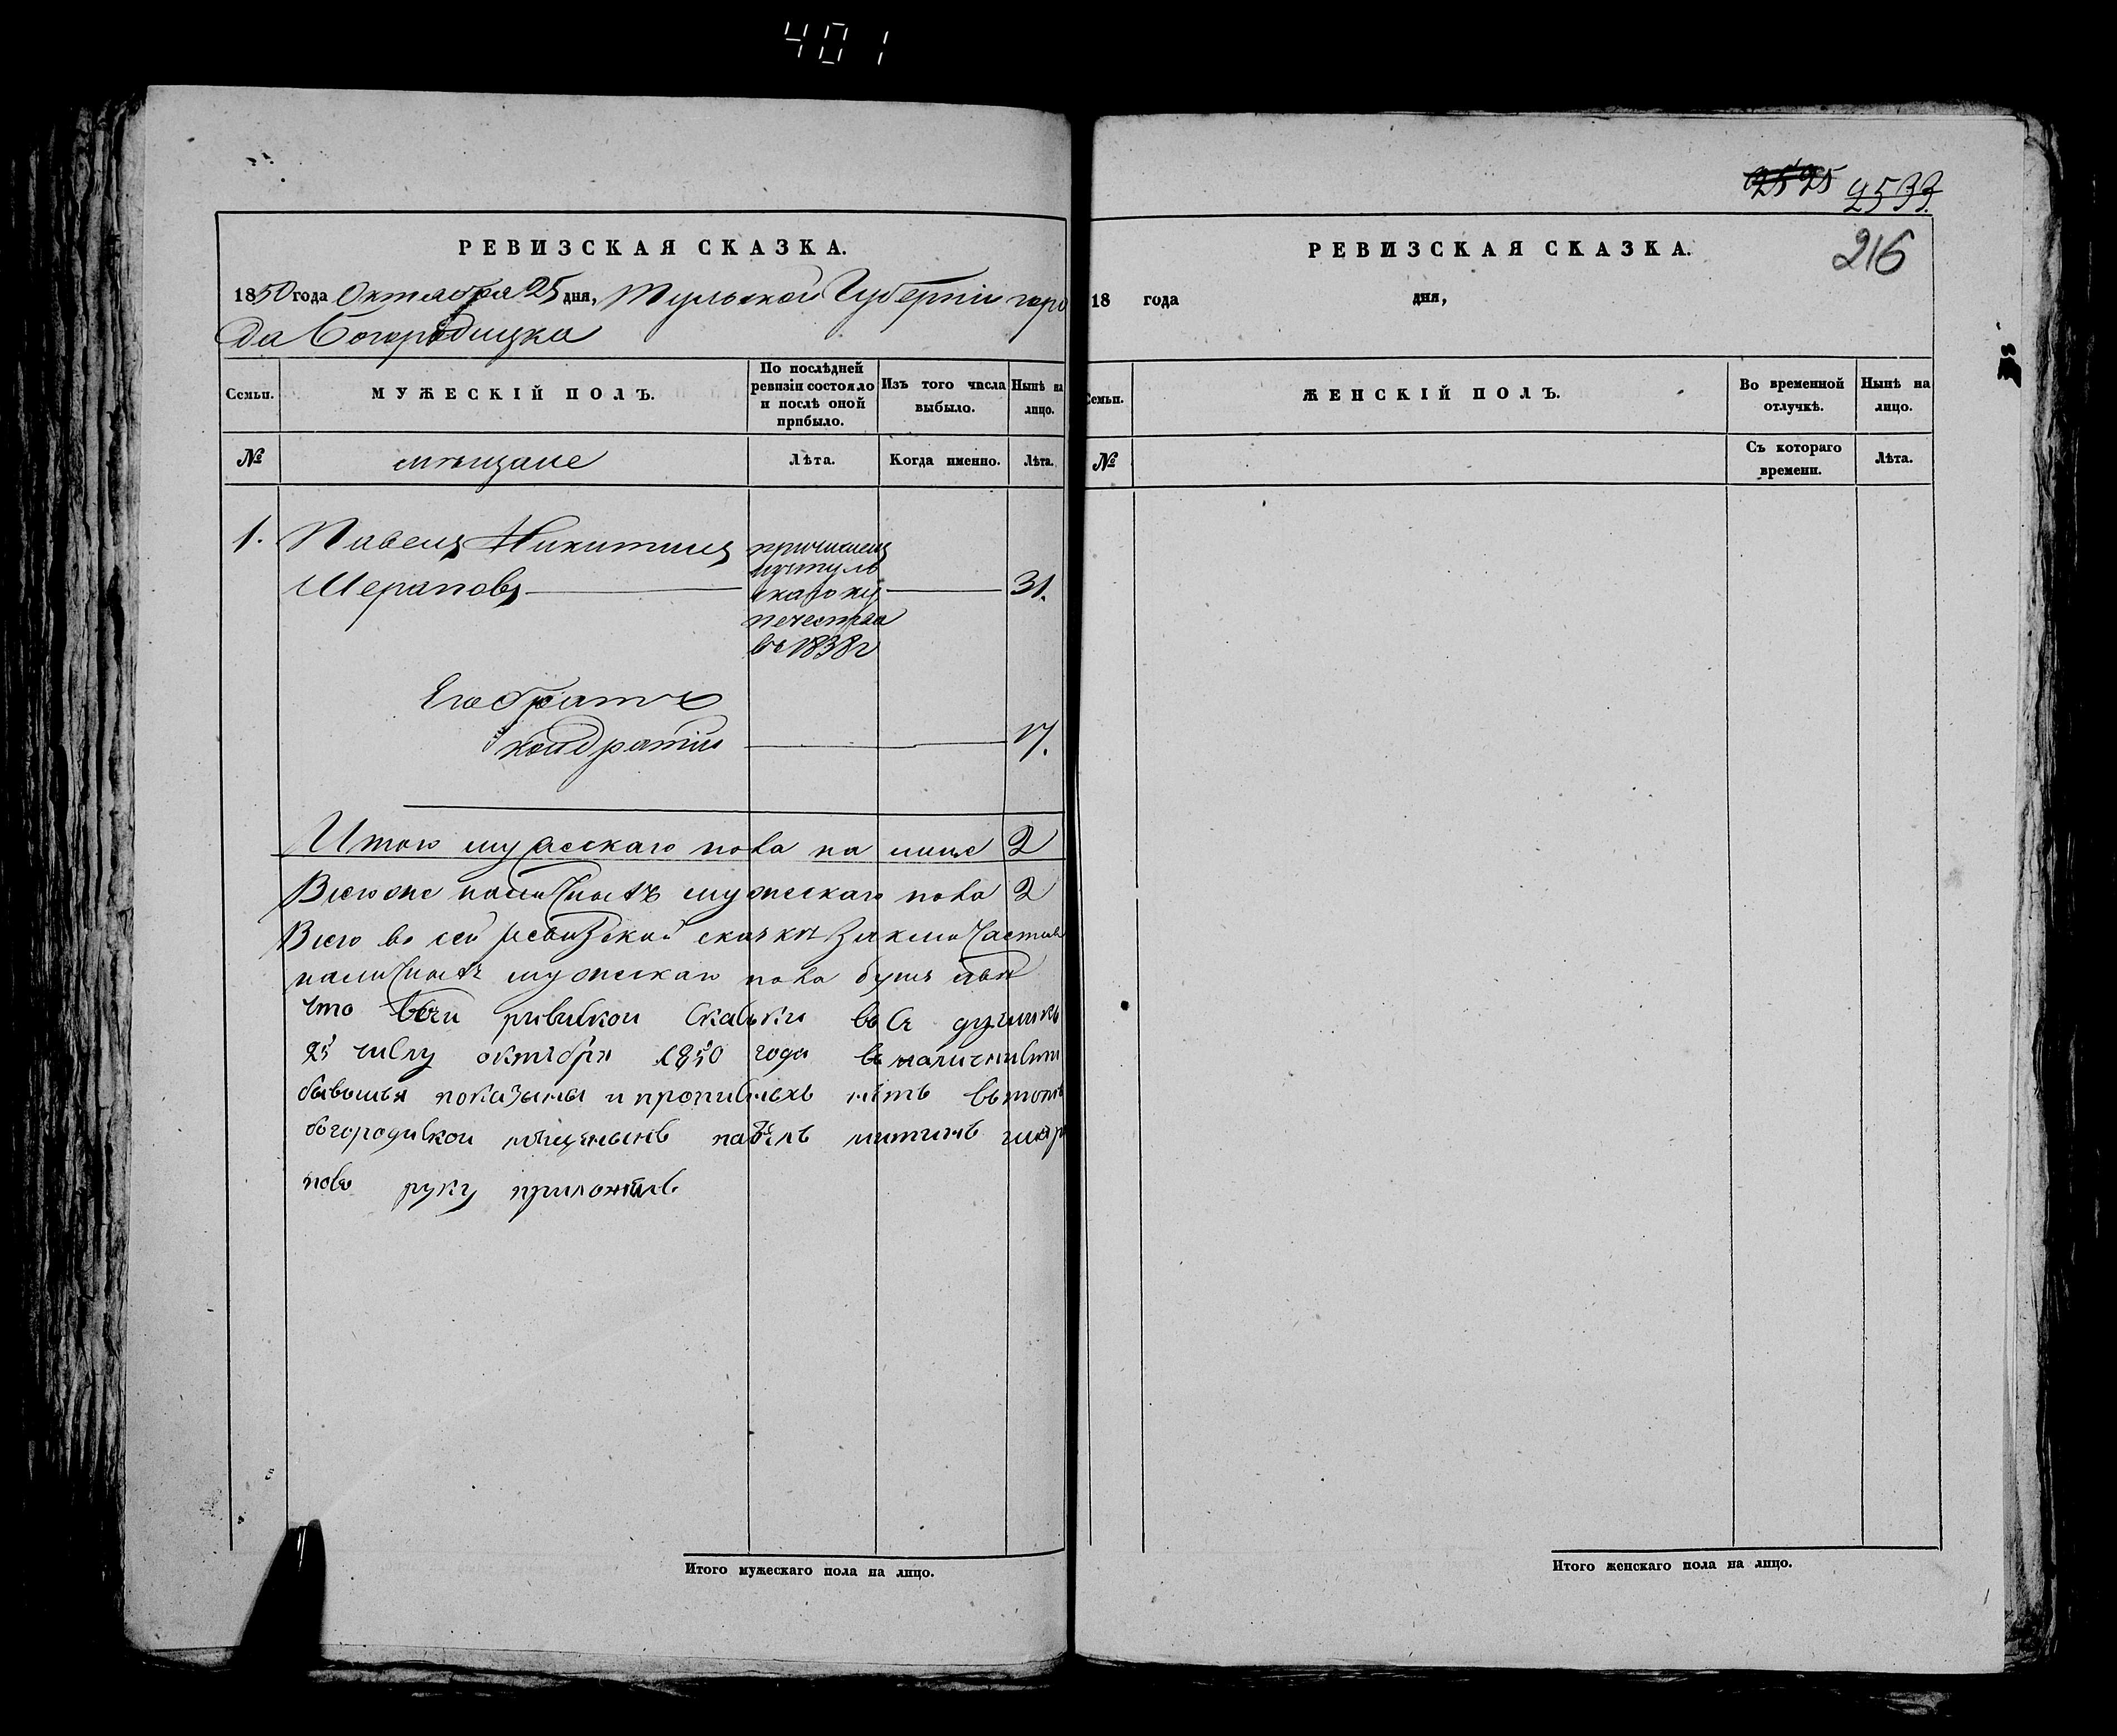 401
РЕВИЗСКАЯ СКАЗКА.
1850 года Октября 25 дня, Тульской Губернiи горо
да Богородицка
Семьи.
МУЖЕСКІЙ ПОЛЪ.
По послѣдней
ревизіи состояло
и послѣ оной
прибыло.
Изъ того числа
выбыло.
Нынѣ на
лицо.
№
мѣщане
Лѣта.
Когда именно.
Лѣта.
1. Павелъ Никитинъ
Шераповъ
причисленъ
изъ туль
скаго ку
печества
въ 1838 г
31.
Его братъ
Кондратiй
17.
Итого мужескаго пола на лице 2
Всего же наличныхъ мужескаго пола 2
Всего во сей ревизской сказкѣ заключается
наличныхъ мужескаго пола душъ два
что
25 числу октября 1850 года
показаны и прописныхъ нѣтъ
руку приложилъ
Итого мужескаго пола на лицо.
2525 2533.
216
РЕВИЗСКАЯ СКАЗКА.
18 года дня,
Семьи.
ЖЕНСКІЙ ПОЛЪ.
Во временной
отлучкѣ.
Нынѣ на
лицо.
№
Съ котораго
времени.
Лѣта.
Итого женскаго пола на лицо.